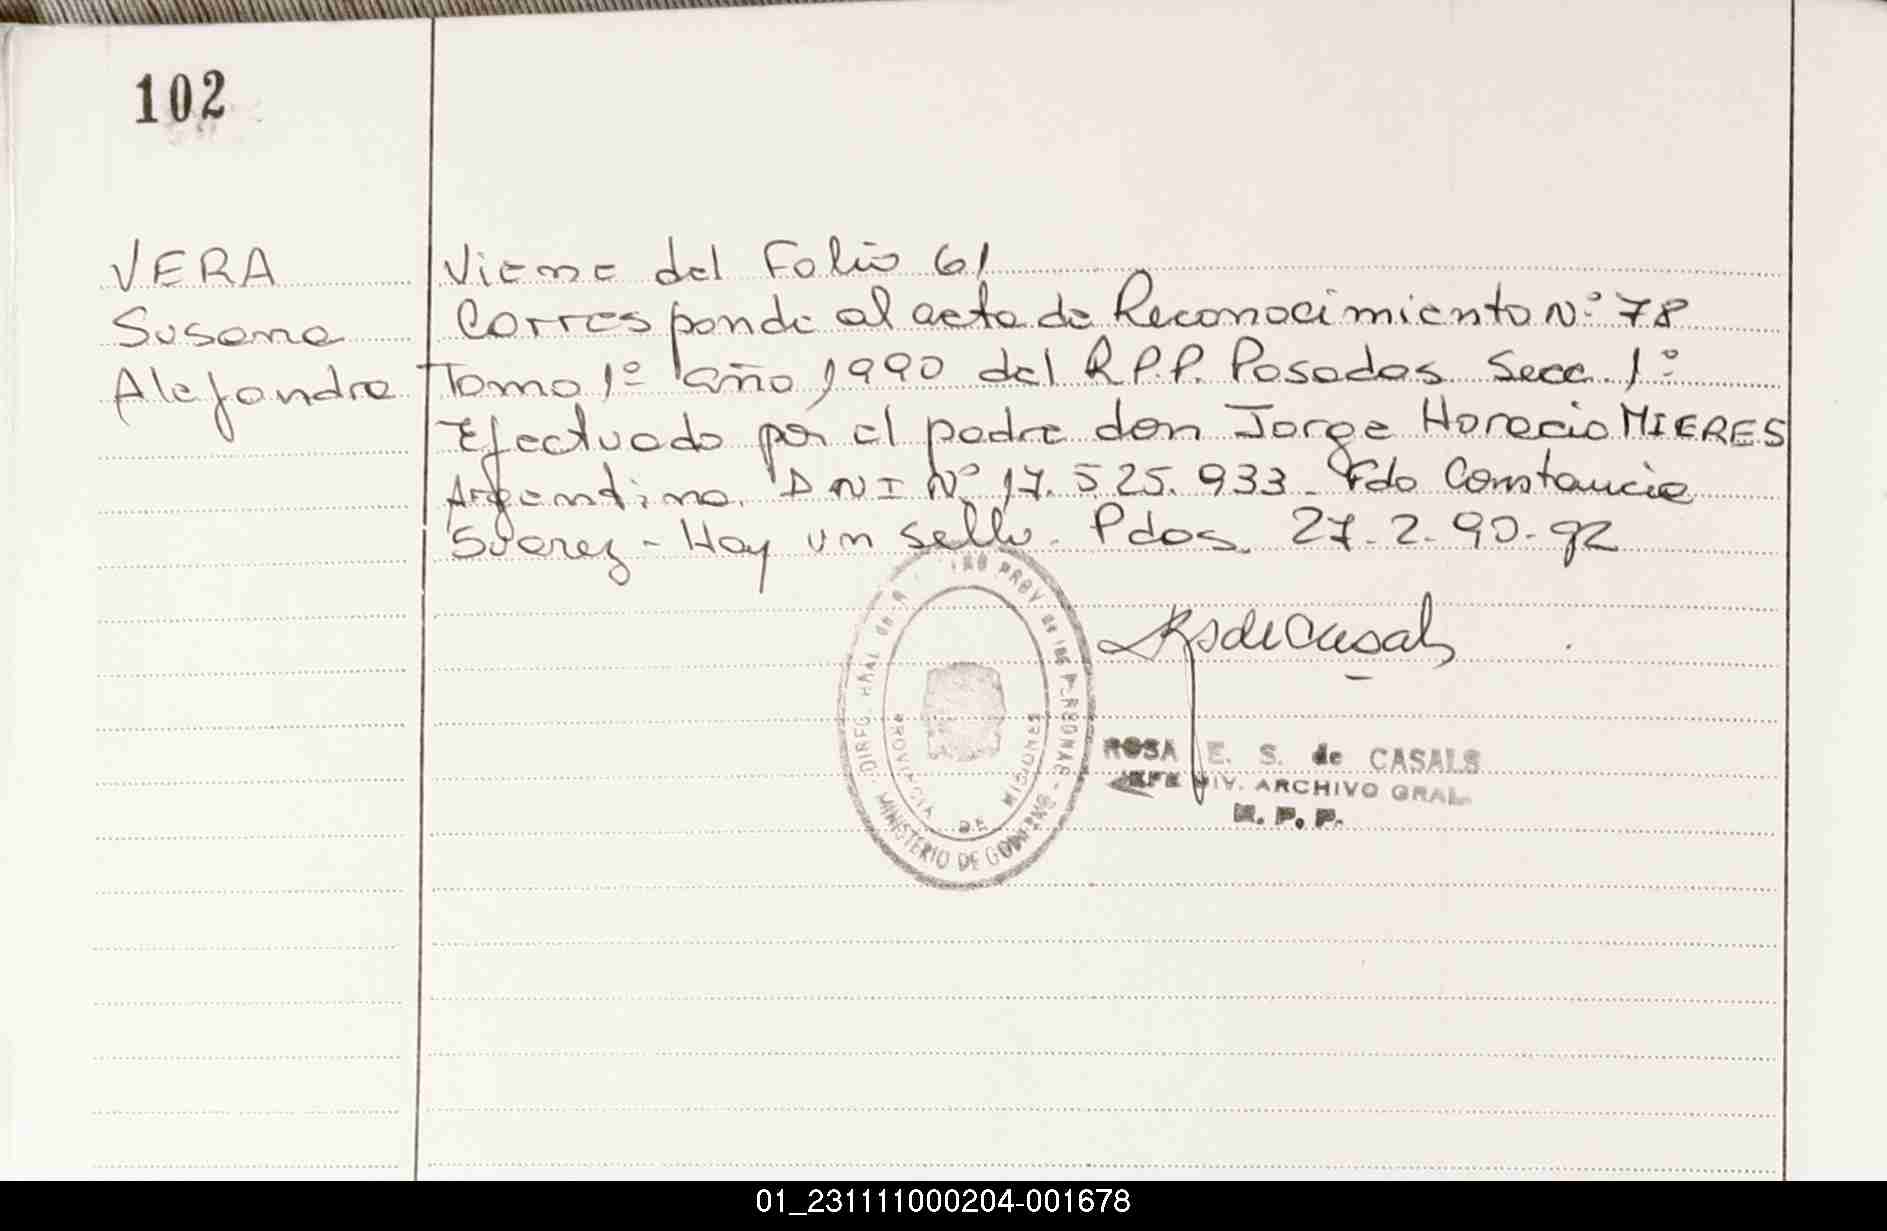 102
VERA
Susana
Alejandra
Viene del Folio 61
Corresponde al acta de Reconocimiento Nº 78
Tomo 1º año 1990 del R.P.P. Posadas Secc. 1º
Efectuado por el padre don Jorge Horacio MIERES
Argentino. DNI Nº 17.525.933. Fdo Constancia
Suarez - Hay un sello. Pdas. 27.2.90.
RSdeCasals
PROV. de las PERSONAS - MINISTERIO DE GOBIERNO
PROVINCIA DE MISIONES
ROSA E. S. de CASALS
JEFE DIV. ARCHIVO GRAL.
R. P. P.
01_231111000204-001678